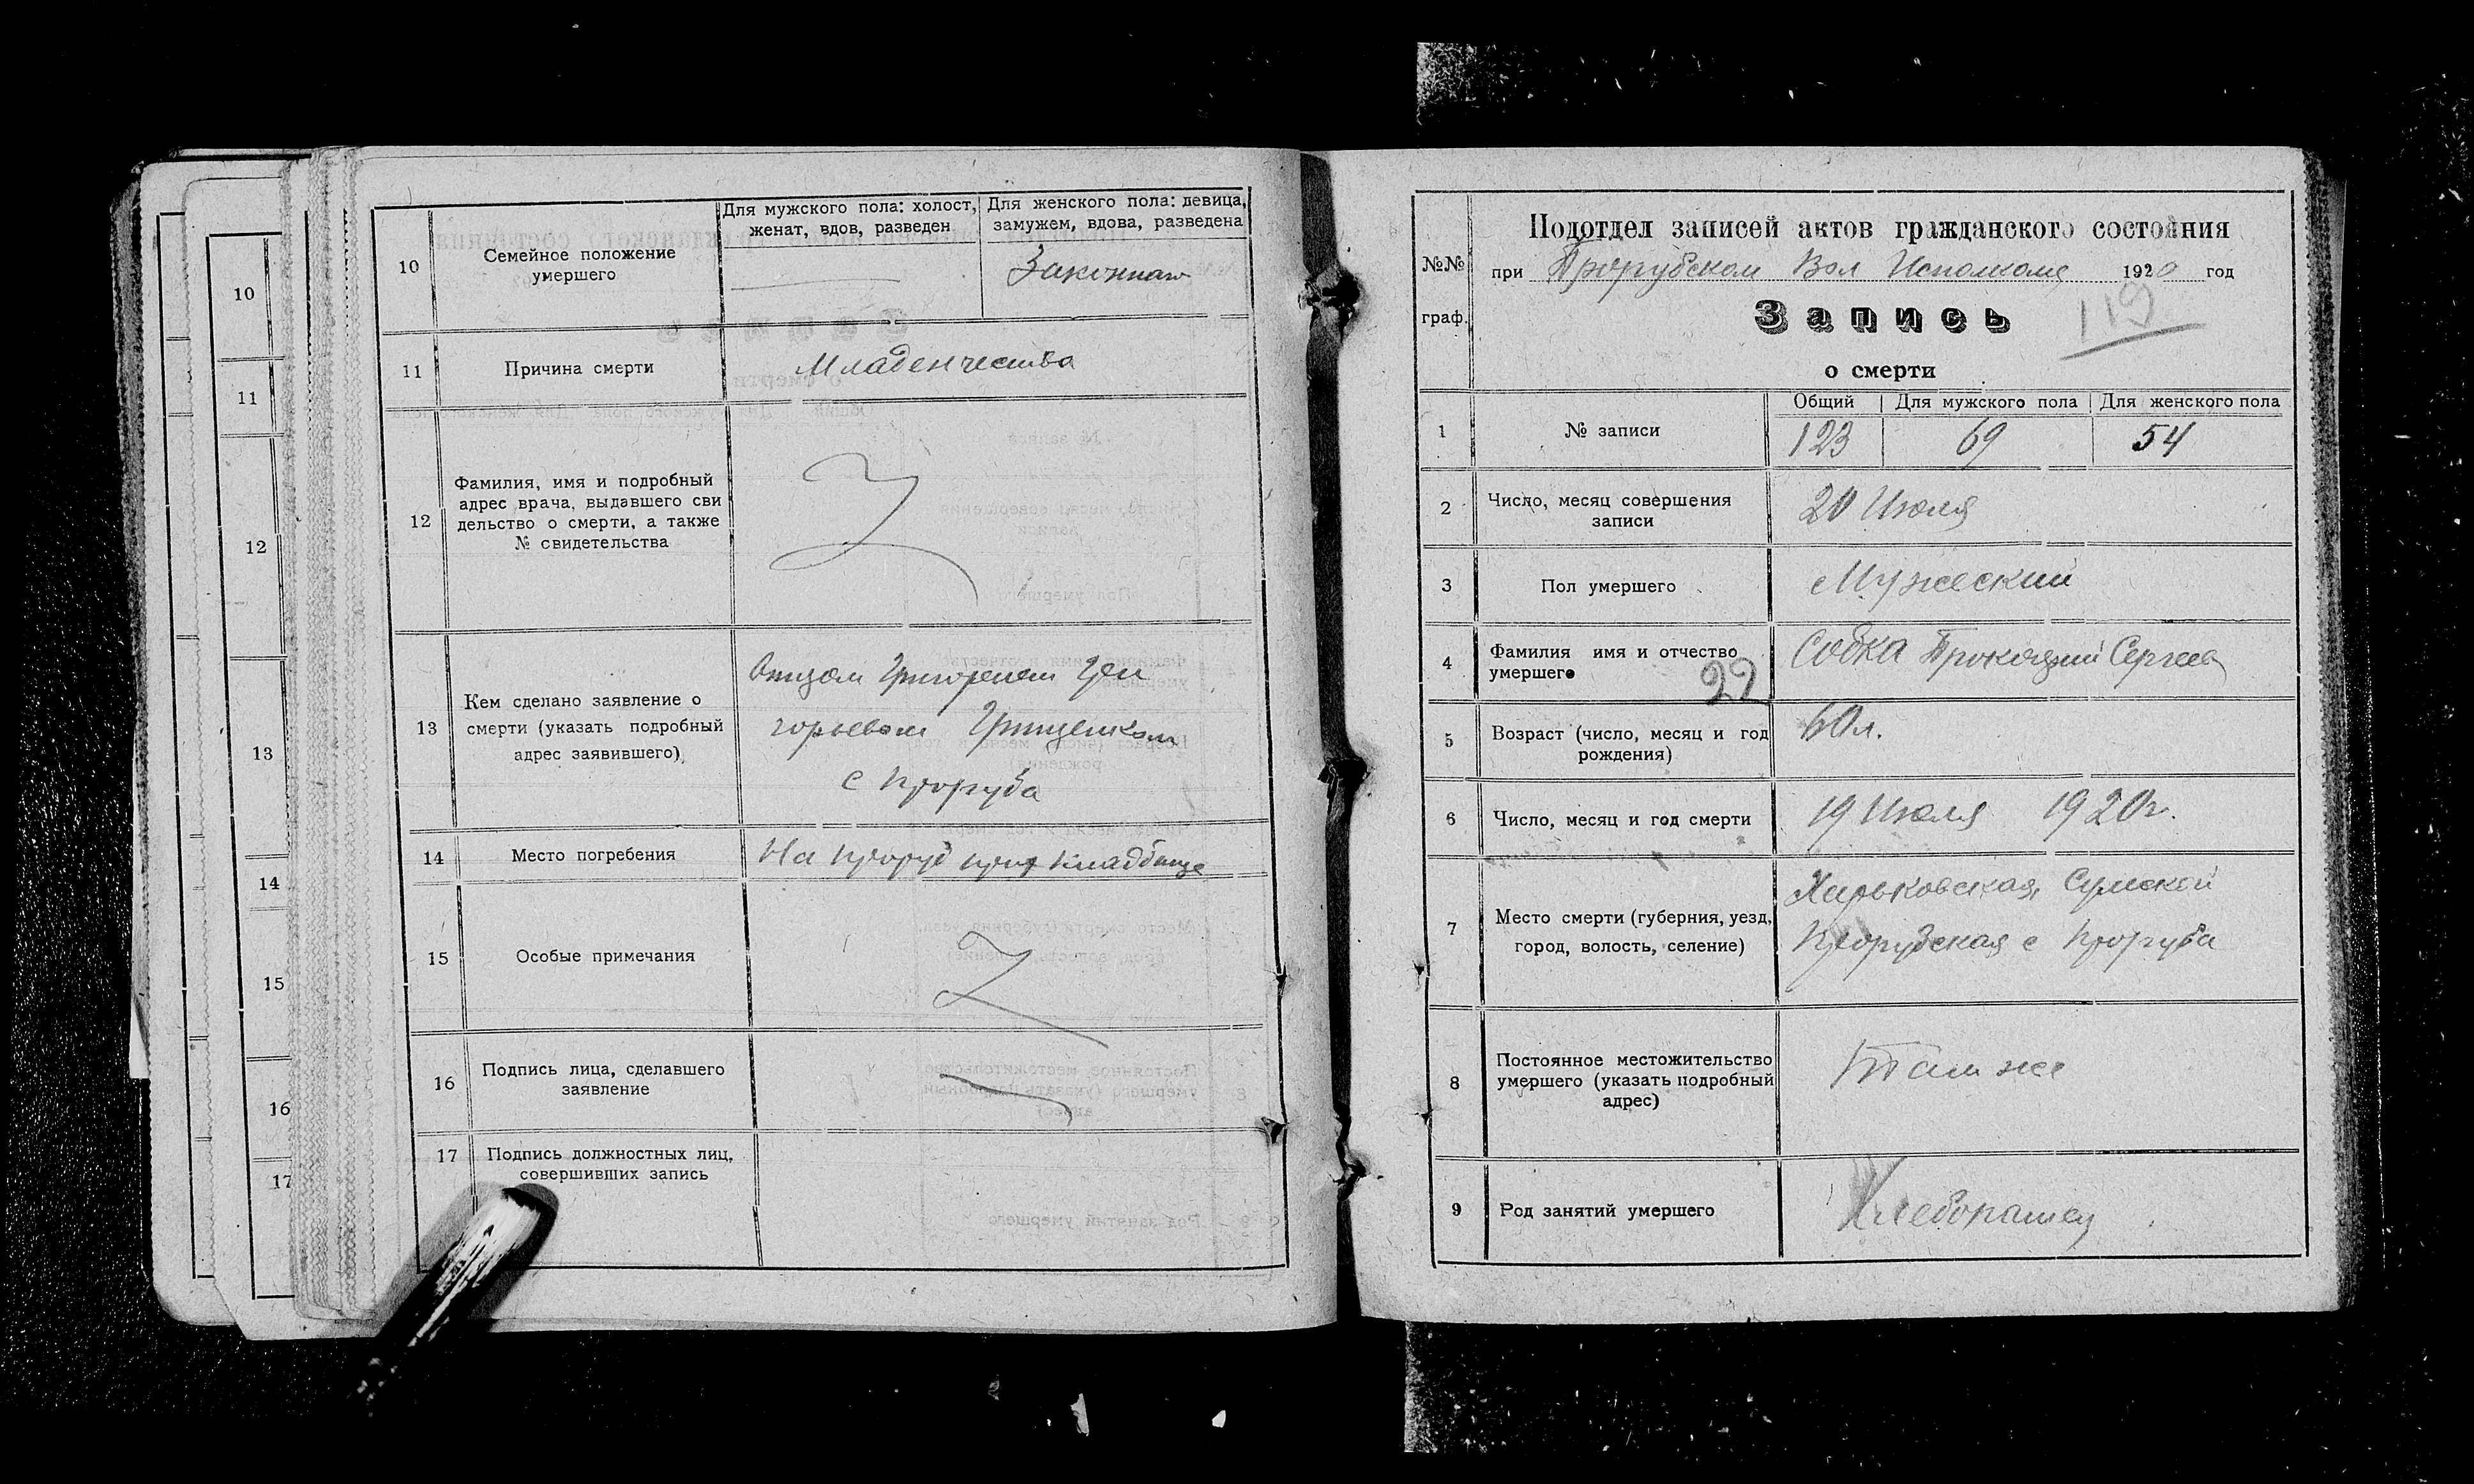 10
11
12
13
14
15
16
17
10
Семейное положение
умершего
Для мужского пола: холост,
женат, вдов, разведен
Для женского пола: девица,
замужем, вдова, разведена
Законная
11
Причина смерти
Младенчества
12
Фамилия, имя и подробный
адрес врача, выдавшего сви
дельство о смерти, а также
№ свидетельства
13
Кем сделано заявление о
смерти (указать подробный
адрес заявившего)
Отцом Григорием Гри
горьевом Грищенком
с Проруба
14
Место погребения
На Проруб прих кладбище
15
Особые примечания
16
Подпись лица, сделавшего
заявление
17
Подпись должностных лиц,
совершивших запись
№№
граф.
Подотдел записей актов гражданского состояния
при Прорубском Вол Исполкоме 1920 год
Запись
119
о смерти
1
№ записи
Общий
Для мужского пола
Для женского пола
123
69
54
2
Число, месяц совершения
записи
20 Июля
3
Пол умершего
Мужеский
4
Фамилия имя и отчество
умершего
22
Собка Прокофий Сергеев
5
Возраст (число, месяц и год
рождения)
60л.
6
Число, месяц и год смерти
19 Июля 1920г.
7
Место смерти (губерния, уезд,
город, волость, селение)
Харьковская, Сумской
Прорубская с Проруба
8
Постоянное местожительство
умершего (указать подробный
адрес)
Там же
9
Род занятий умершего
Хлеборашец